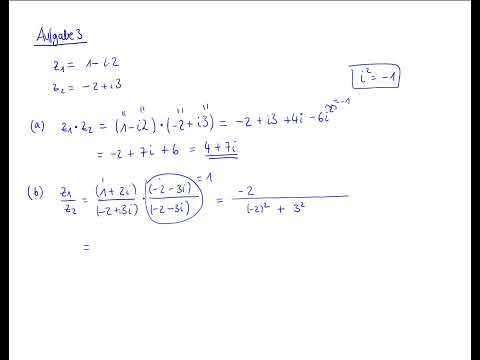 Aufgabe 3
z₁ = 1-i·2
z₂ = -2+i3
i² = -1
(a) z₁·z₂ = (1-i2)·(-2+i3) = -2 + i3 + 4i - 6i² = -1
= -2 + 7i + 6 = 4+7i
(b) z₁/z₂ = (1+2i)/(-2+3i) · (-2-3i)/(-2-3i) = 1 = -2/((-2)² + 3²)
=